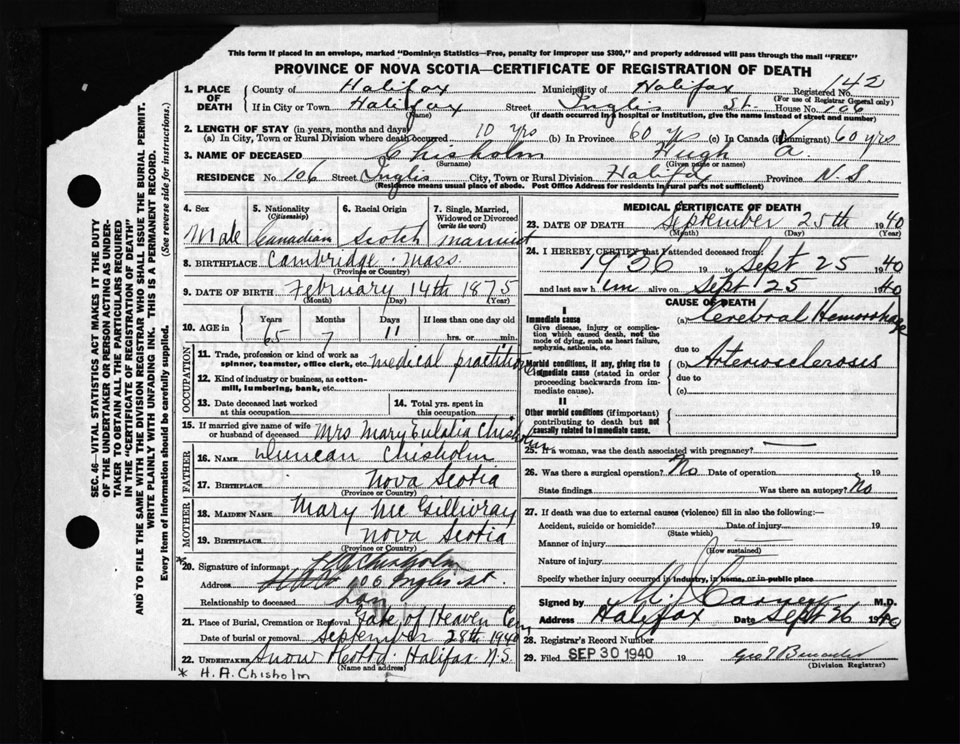 This form if placed in an envelope, marked "Dominion Statistics—Free, penalty for improper use $300," and properly addressed will pass through the mail "FREE"
PROVINCE OF NOVA SCOTIA—CERTIFICATE OF REGISTRATION OF DEATH
SEC. 46—VITAL STATISTICS ACT MAKES IT THE DUTY
OF THE UNDERTAKER OR PERSON ACTING AS UNDER-
TAKER TO OBTAIN ALL THE PARTICULARS REQUIRED
IN THE "CERTIFICATE OF REGISTRATION OF DEATH"
AND TO FILE THE SAME WITH THE DIVISION REGISTRAR WHO SHALL ISSUE THE BURIAL PERMIT.
WRITE PLAINLY WITH UNFADING INK. THIS IS A PERMANENT RECORD.
Every item of information should be carefully supplied. (See reverse side for instructions.)
1. PLACE OF DEATH
County of Halifax Municipality of Halifax Registered No. 142
(For use of Registrar General only)
If in City or Town Halifax Street Inglis St. House No. 106
(Name) (If death occurred in a hospital or institution, give the name instead of street and number)
2. LENGTH OF STAY (in years, months and days)
(a) In City, Town or Rural Division where death occurred 10 yrs (b) In Province 60 yrs (c) In Canada (if immigrant) 60 yrs
3. NAME OF DECEASED Chisholm Hugh A.
(Surname) (Given name or names)
RESIDENCE No. 106 Street Inglis City, Town or Rural Division Halifax Province N.S.
(Residence means usual place of abode. Post Office Address for residents in rural parts not sufficient)
4. Sex Male
5. Nationality (Citizenship) Canadian
6. Racial Origin Scotch
7. Single, Married, Widowed or Divorced (write the word) married
8. BIRTHPLACE Cambridge Mass.
(Province or Country)
9. DATE OF BIRTH February 14th 1875
(Month) (Day) (Year)
10. AGE in Years Months Days If less than one day old
65 7 11 hrs. or min.
OCCUPATION
11. Trade, profession or kind of work as spinner, teamster, office clerk, etc. medical practitioner
12. Kind of industry or business, as cotton-mill, lumbering, bank, etc.
13. Date deceased last worked at this occupation
14. Total yrs. spent in this occupation
15. If married give name of wife or husband of deceased Mrs Mary Eulalia Chisholm
FATHER
16. NAME Duncan Chisholm
17. BIRTHPLACE Nova Scotia
(Province or Country)
MOTHER
18. MAIDEN NAME Mary McGillivray
19. BIRTHPLACE Nova Scotia
(Province or Country)
*
20. Signature of informant H A Chisholm
Address 106 Inglis St.
Relationship to deceased Son
21. Place of Burial, Cremation or Removal Gate of Heaven Cem
Date of burial or removal September 28th 1940
22. UNDERTAKER Snow & Co Ltd. Halifax N.S.
(Name and address)
* H. A. Chisholm
MEDICAL CERTIFICATE OF DEATH
23. DATE OF DEATH September 25th 1940
(Month) (Day) (Year)
24. I HEREBY CERTIFY that I attended deceased from:
1936 19 to Sept 25 1940
and last saw him alive on Sept 25 1940
CAUSE OF DEATH
I
Immediate cause
Give disease, injury or complication which caused death, not the mode of dying, such as heart failure, asphyxia, asthenia, etc.
(a) Cerebral Hemorrhage
due to
Morbid conditions, if any, giving rise to immediate cause (stated in order proceeding backwards from immediate cause).
(b) Arteriosclerosis
due to
(c)
II
Other morbid conditions (if important) contributing to death but not causally related to immediate cause.
25. If a woman, was the death associated with pregnancy?
26. Was there a surgical operation? No Date of operation 19
State findings Was there an autopsy? No
27. If death was due to external causes (violence) fill in also the following:—
Accident, suicide or homicide? Date of injury 19
(State which)
Manner of injury
(How sustained)
Nature of injury
Specify whether injury occurred in industry, in home, or in public place
Signed by M.D.
Address Halifax Date Sept 26 1940
28. Registrar's Record Number
29. Filed SEP 30 1940 19
(Division Registrar)